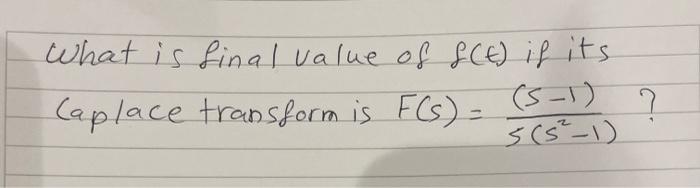 What is final value of f(t) if its
Laplace transform is F(s) = (s-1) / s(s²-1) ?